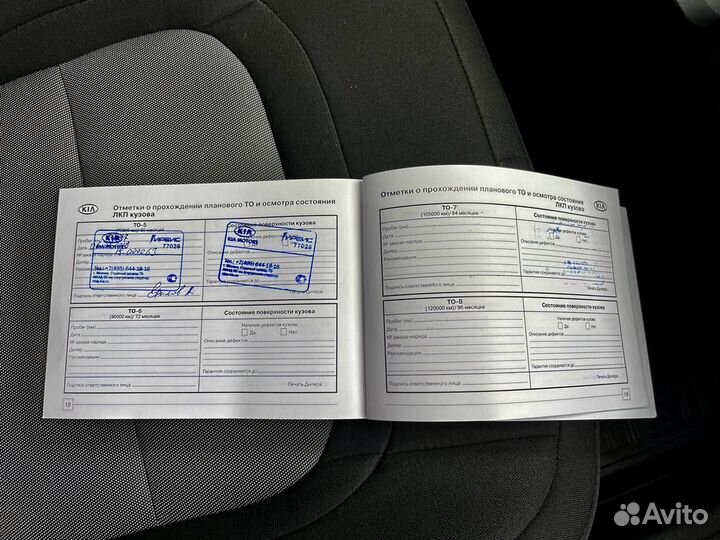 KIA
Отметки о прохождении планового ТО и осмотра состояния
ЛКП кузова
ТО-5
Состояние поверхности кузова
Пробег
Дата
№ заказ-наряда
Дилер
Рекомендации
Подпись ответственного лица
KIA
KIA MOTORS
77028
Тел.: +7(495) 644-18-18
KIA
KIA MOTORS
77028
Тел.: +7(495) 644-18-18
ТО-6
(90000 км)/ 72 месяцев
Состояние поверхности кузова
Пробег (км)
Дата
№ заказ-наряда
Дилер
Рекомендации
Подпись ответственного лица
Наличие дефектов кузова
Да Нет
Описание дефектов
Гарантия сохраняется до
Печать Дилера
18
Отметки о прохождении планового ТО и осмотра состояния
ЛКП кузова
KIA
ТО-7
(105000 км)/ 84 месяцев
Состояние поверхности кузова
Пробег (км)
Дата
№ заказ-наряда
Дилер
Рекомендации
Подпись ответственного лица
Описание дефектов
Гарантия сохраняется до
Печать Дилера
ТО-8
(120000 км)/ 96 месяцев
Состояние поверхности кузова
Пробег (км)
Дата
№ заказ-наряда
Дилер
Рекомендации
Подпись ответственного лица
Наличие дефектов кузова
Да Нет
Описание дефектов
Гарантия сохраняется до
Печать Дилера
19
Avito